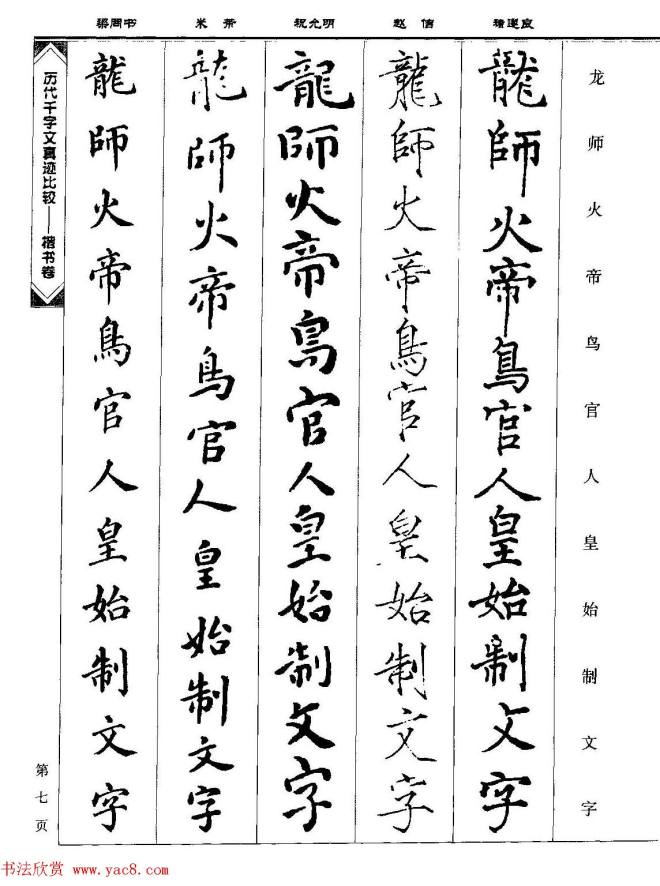 龙师火帝鸟官人皇始制文字
褚遂良
龍師火帝鳥官人皇始制文字
赵佶
龍師火帝鳥官人皇始制文字
祝允明
龍師火帝鳥官人皇始制文字
米芾
龍師火帝鳥官人皇始制文字
梁同书
龍師火帝鳥官人皇始制文字
历代千字文真迹比较——楷书卷
第七页
书法欣赏 www.yac8.com